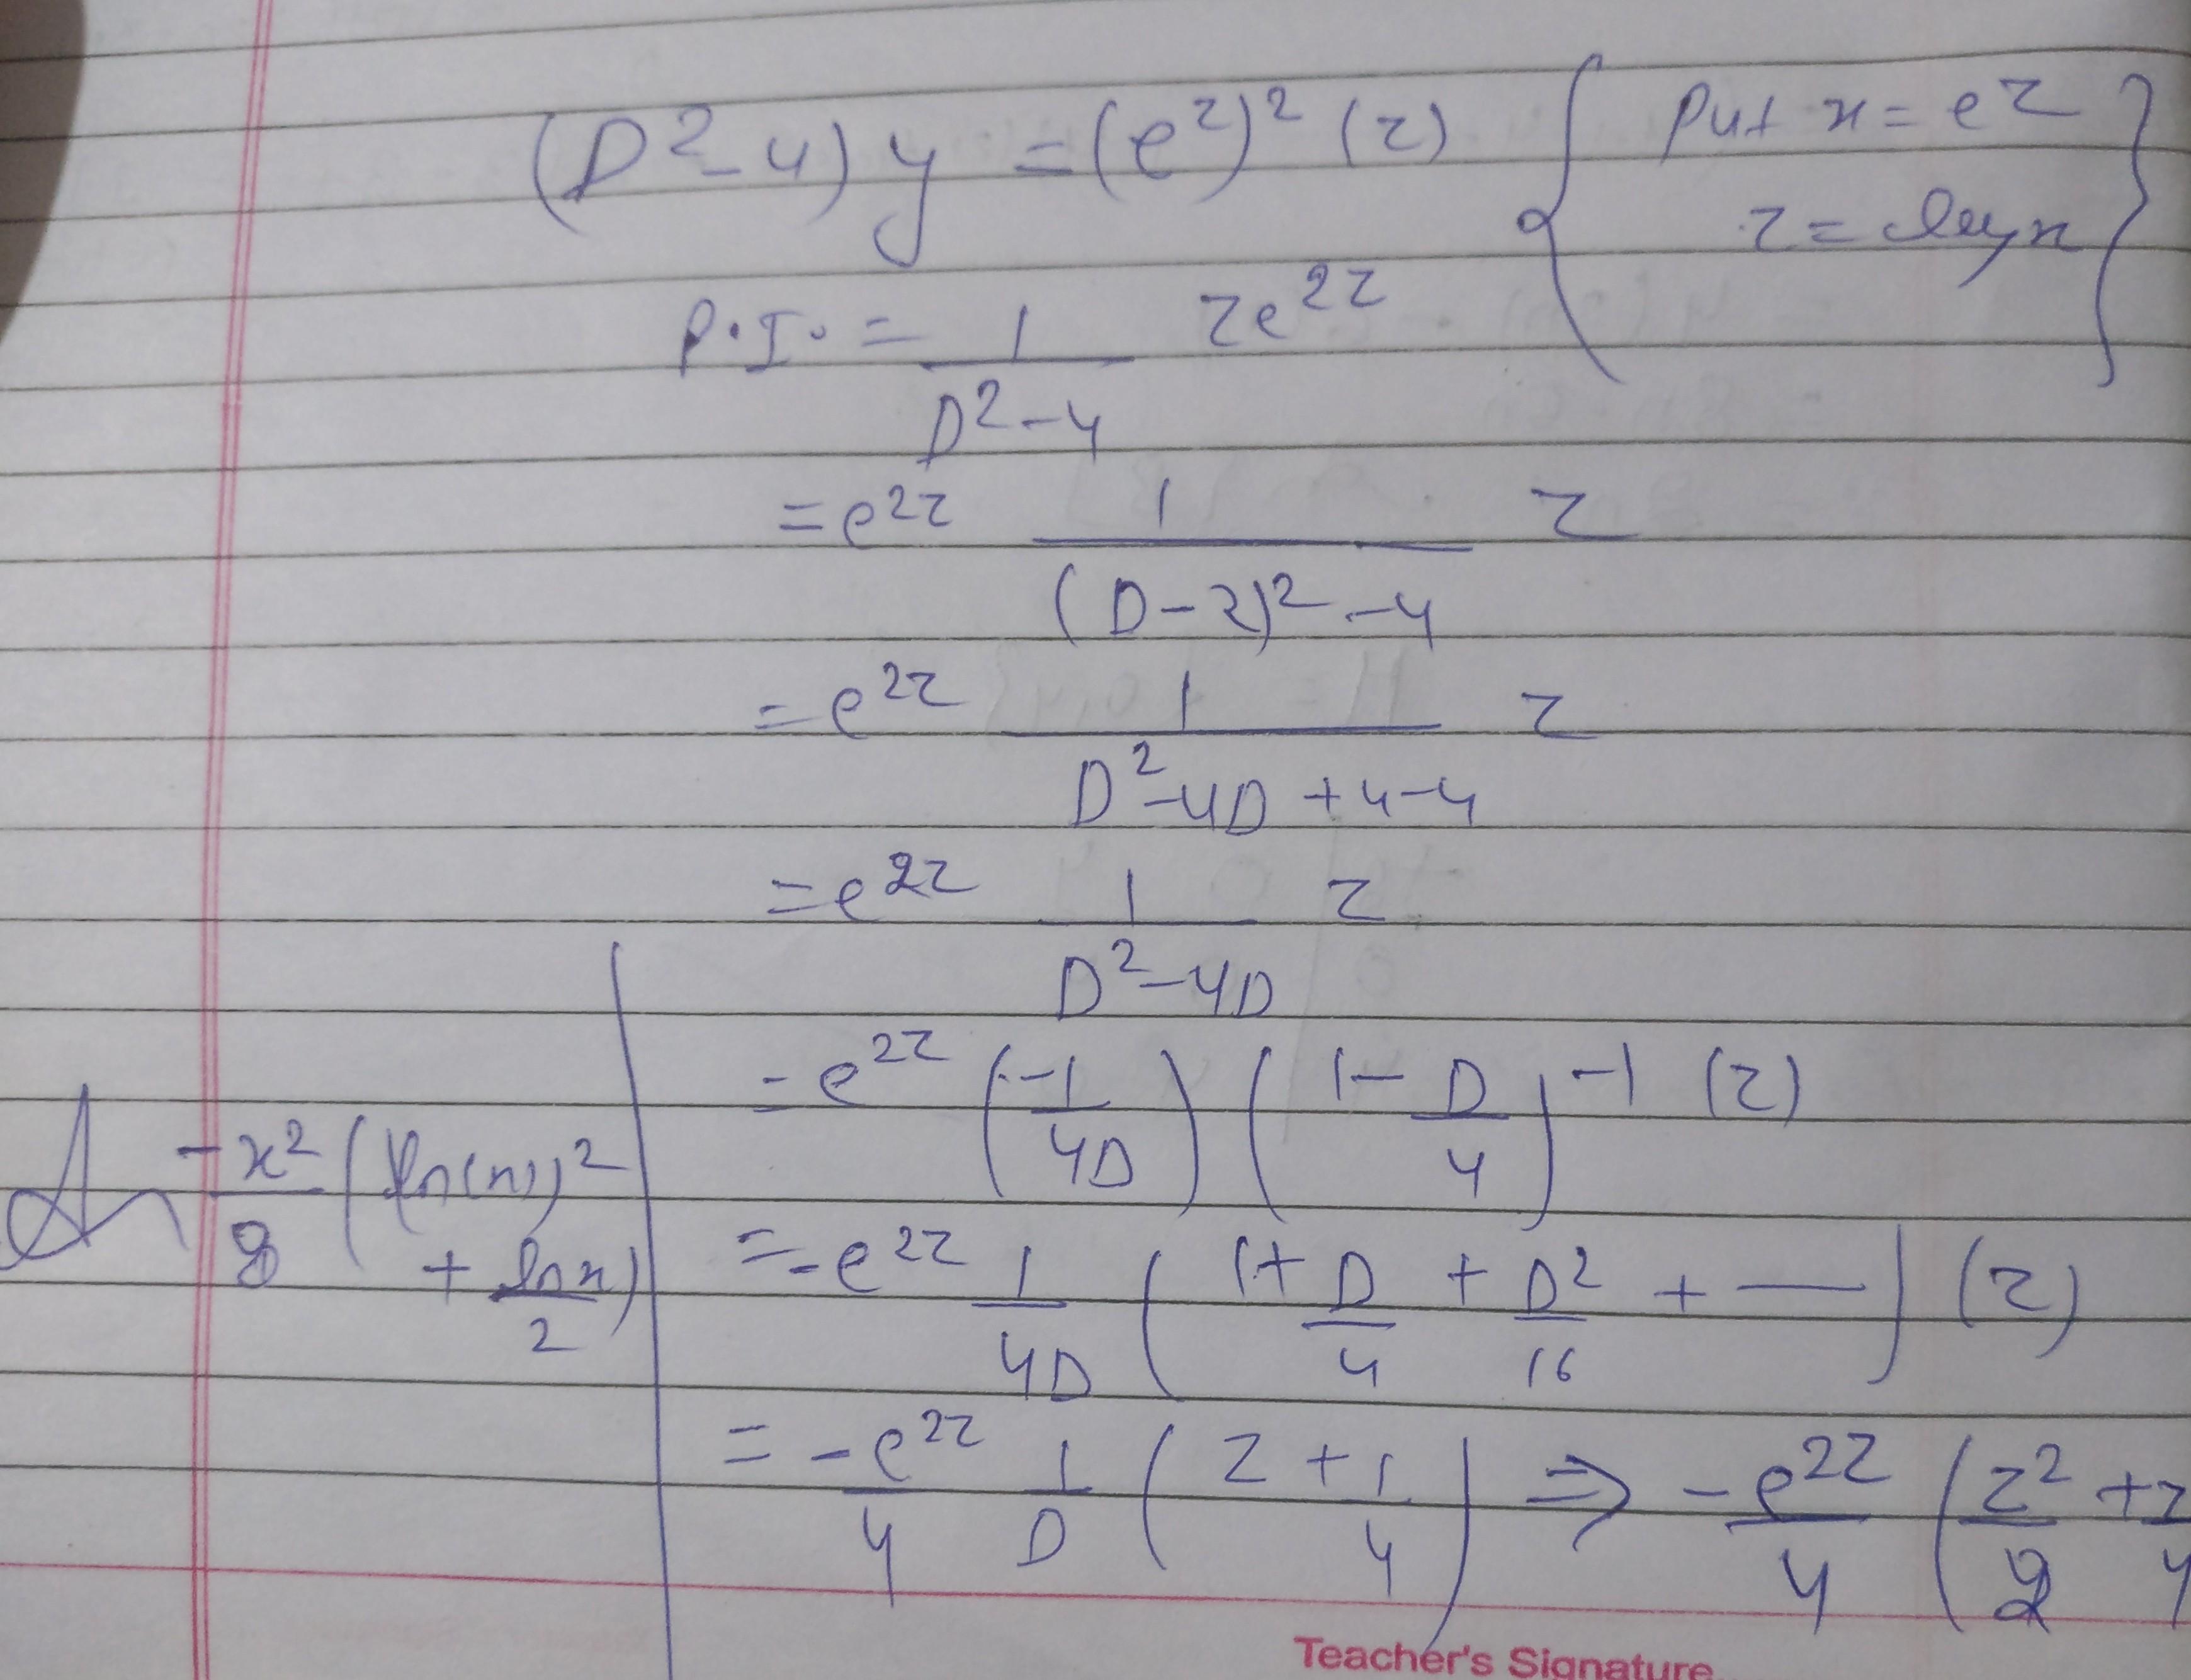 (D² - 4) y = (e^z)² (z) { Put x = e^z
z = log x }
P.I. = 1/(D² - 4) ze^2z
= e^2z 1/((D - 2)² - 4) z
= e^2z 1/(D² - 4D + 4 - 4) z
= e^2z 1/(D² - 4D) z
= e^2z (-1/4D) (1 - D/4)^-1 (z)
= -e^2z 1/4D (1 + D/4 + D²/16 + —) (z)
= -e^2z/4 1/D (z + 1/4) ⇒ -e^2z/4 (z²/2 + z/4
-x²/8 ((ln(x))²
+ ln x/2)
Teacher's Signature